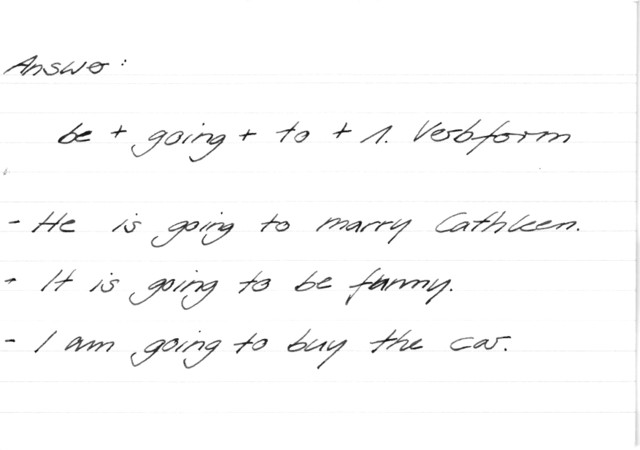 Answer:
be + going + to + 1. Verbform
- He is going to marry Cathleen.
- It is going to be funny.
- I am going to buy the car.